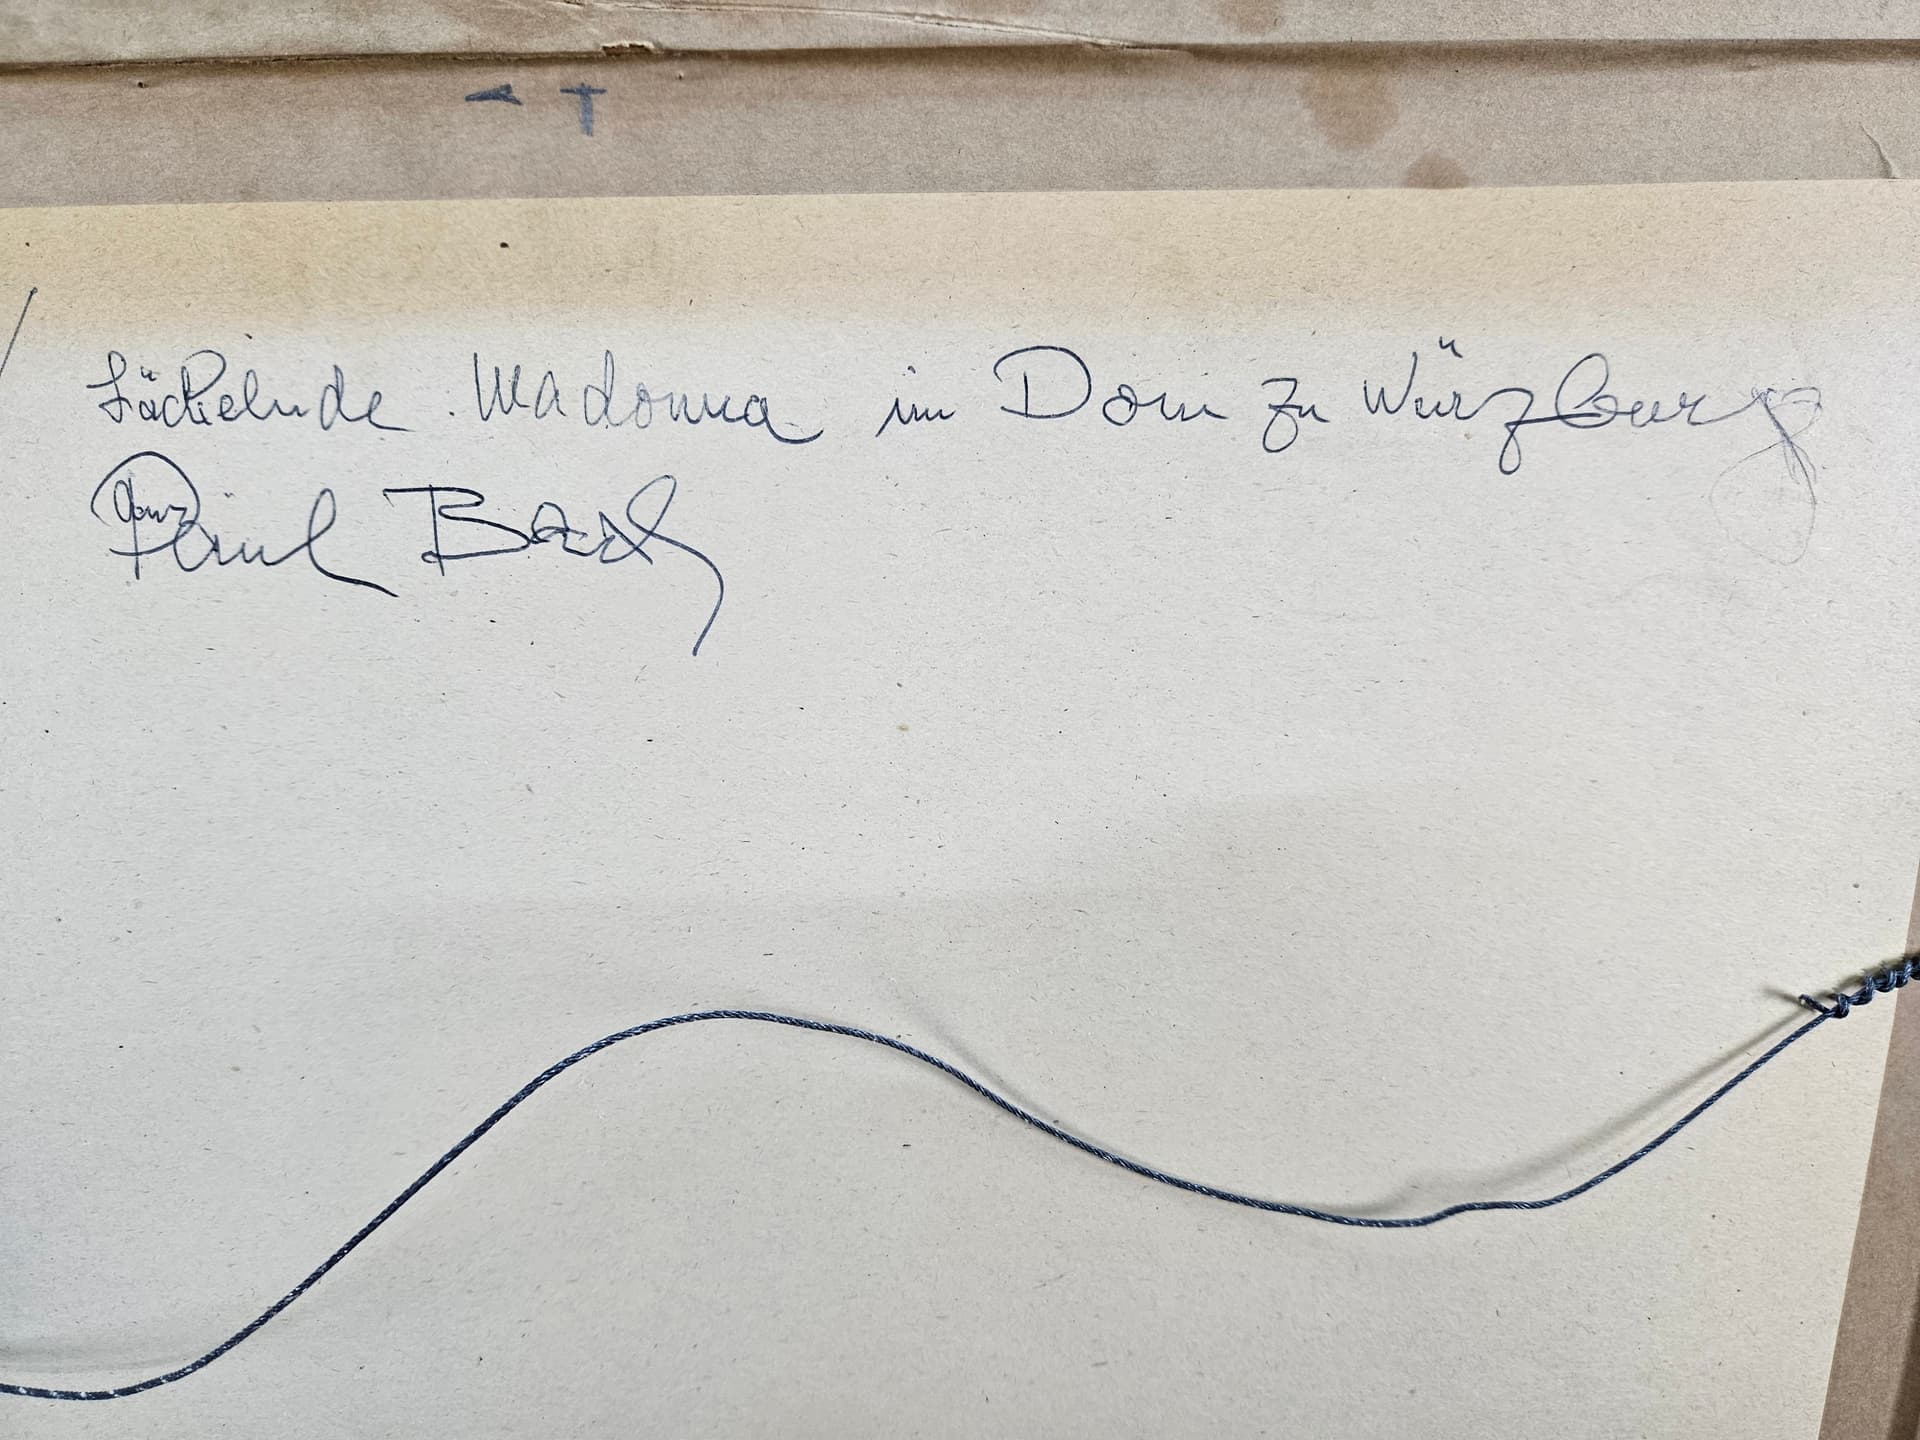 T
Lächelnde Madonna im Dom zu Würzburg
Paul Bach